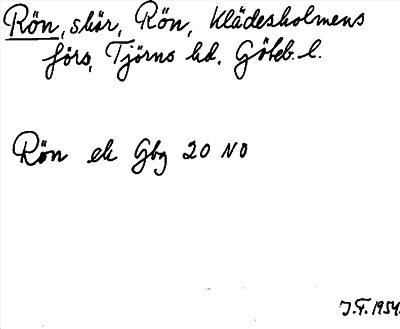 Rön, skär, Rön, Klädesholmens
förs, Tjörns hd, Göteb. l.
Rön ek Gbg 20 NO
J.F. 1954.